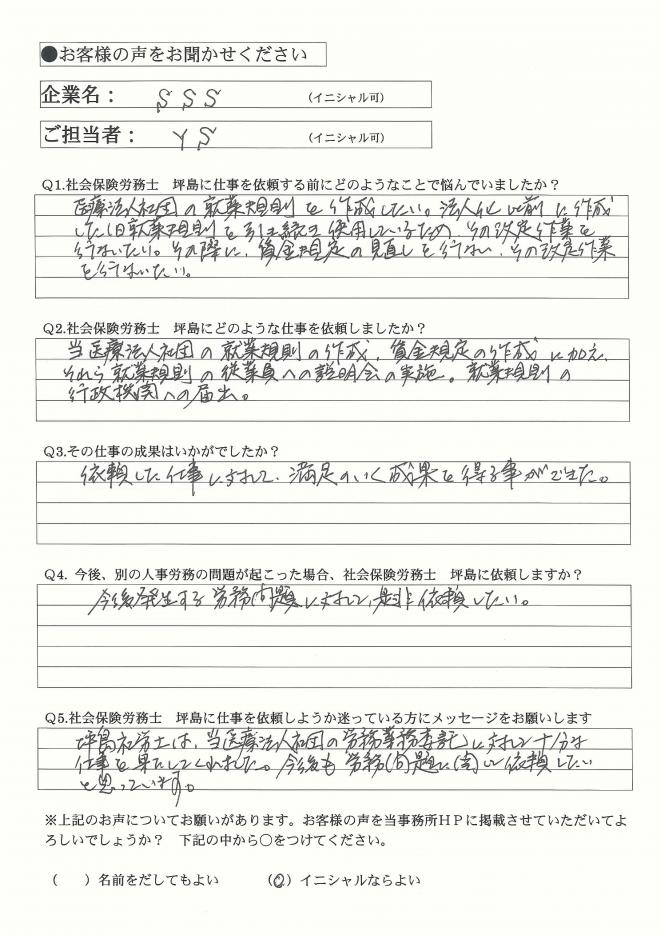 ●お客様の声をお聞かせください
企業名： SSS （イニシャル可）
ご担当者： YS （イニシャル可）
Q1.社会保険労務士　坪島に仕事を依頼する前にどのようなことで悩んでいましたか？
医療法人社団の就業規則を作成したい。法人化以前に作成
した旧就業規則を引き続き使用しているため、その改定作業を
行ないたい。その際に、賃金規定の見直しを行ない、その改定作業
を行ないたい。
Q2.社会保険労務士　坪島にどのような仕事を依頼しましたか？
当医療法人社団の就業規則の作成、賃金規定の作成に加え、
それら就業規則の従業員への説明会の実施。就業規則の
行政機関への届出。
Q3.その仕事の成果はいかがでしたか？
依頼した仕事に対して、満足のいく成果を得る事ができた。
Q4. 今後、別の人事労務の問題が起こった場合、社会保険労務士　坪島に依頼しますか？
今後発生する労務問題に対して、是非依頼したい。
Q5.社会保険労務士　坪島に仕事を依頼しようか迷っている方にメッセージをお願いします
坪島社労士は、当医療法人社団の労務業務委託に対して十分な
仕事を果たしてくれました。今後も労務問題に関して依頼したい
と思っています。
※上記のお声についてお願いがあります。お客様の声を当事務所ＨＰに掲載させていただいてよ
ろしいでしょうか？　下記の中から○をつけてください。
（　　）名前をだしてもよい　　　（○）イニシャルならよい